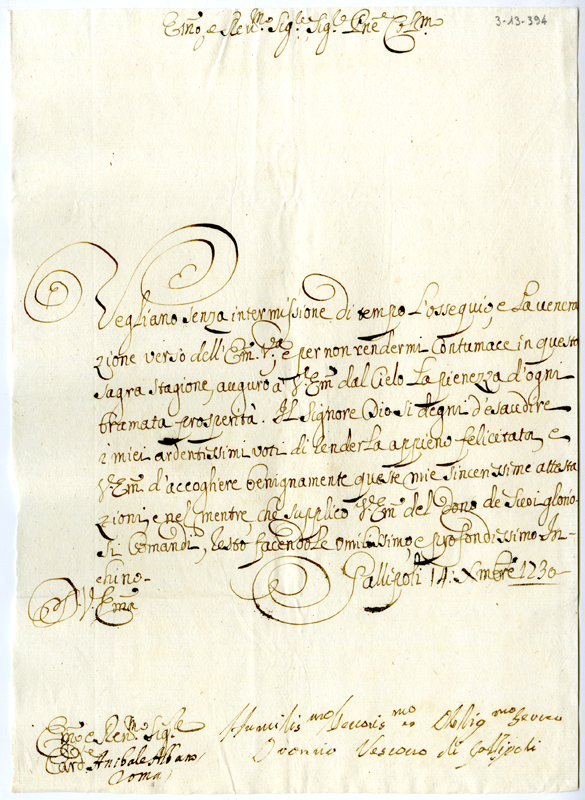 3-13-394
Em̃o e Reu.mo Sig.re Sig.re Pñe Col.mo
Vegliano senza intermissione di tempo l'ossequio, e la uenera
zione uerso dell'Em̃. V.a, e per non rendermi Contumace in questa
sagra stagione, auguro à V. Em̃ dal Cielo la pienezza d'ogni
bramata prosperità. Il Signore Dio si degni d'esaudire
i miei ardentissimi uoti di renderla appieno felicitata, e
V. Em̃ d'accogliere benignamente queste mie sincerissime attesta
zioni, e nel mentre, che supplico V. Em̃ del dono de Suoi glorio-
si Comandi, resto facendole umilissimo, e profondissimo In-
chino.
Di V. Em̃a
Gallipoli 14: Xmbre 1730
Em̃o e Reu.mo Sig.re
Sig.re
Card. Anibale Albano
Roma
Humilis.mo Deuotis.mo Oblig.mo Seruo
Vescouo di Gallipoli